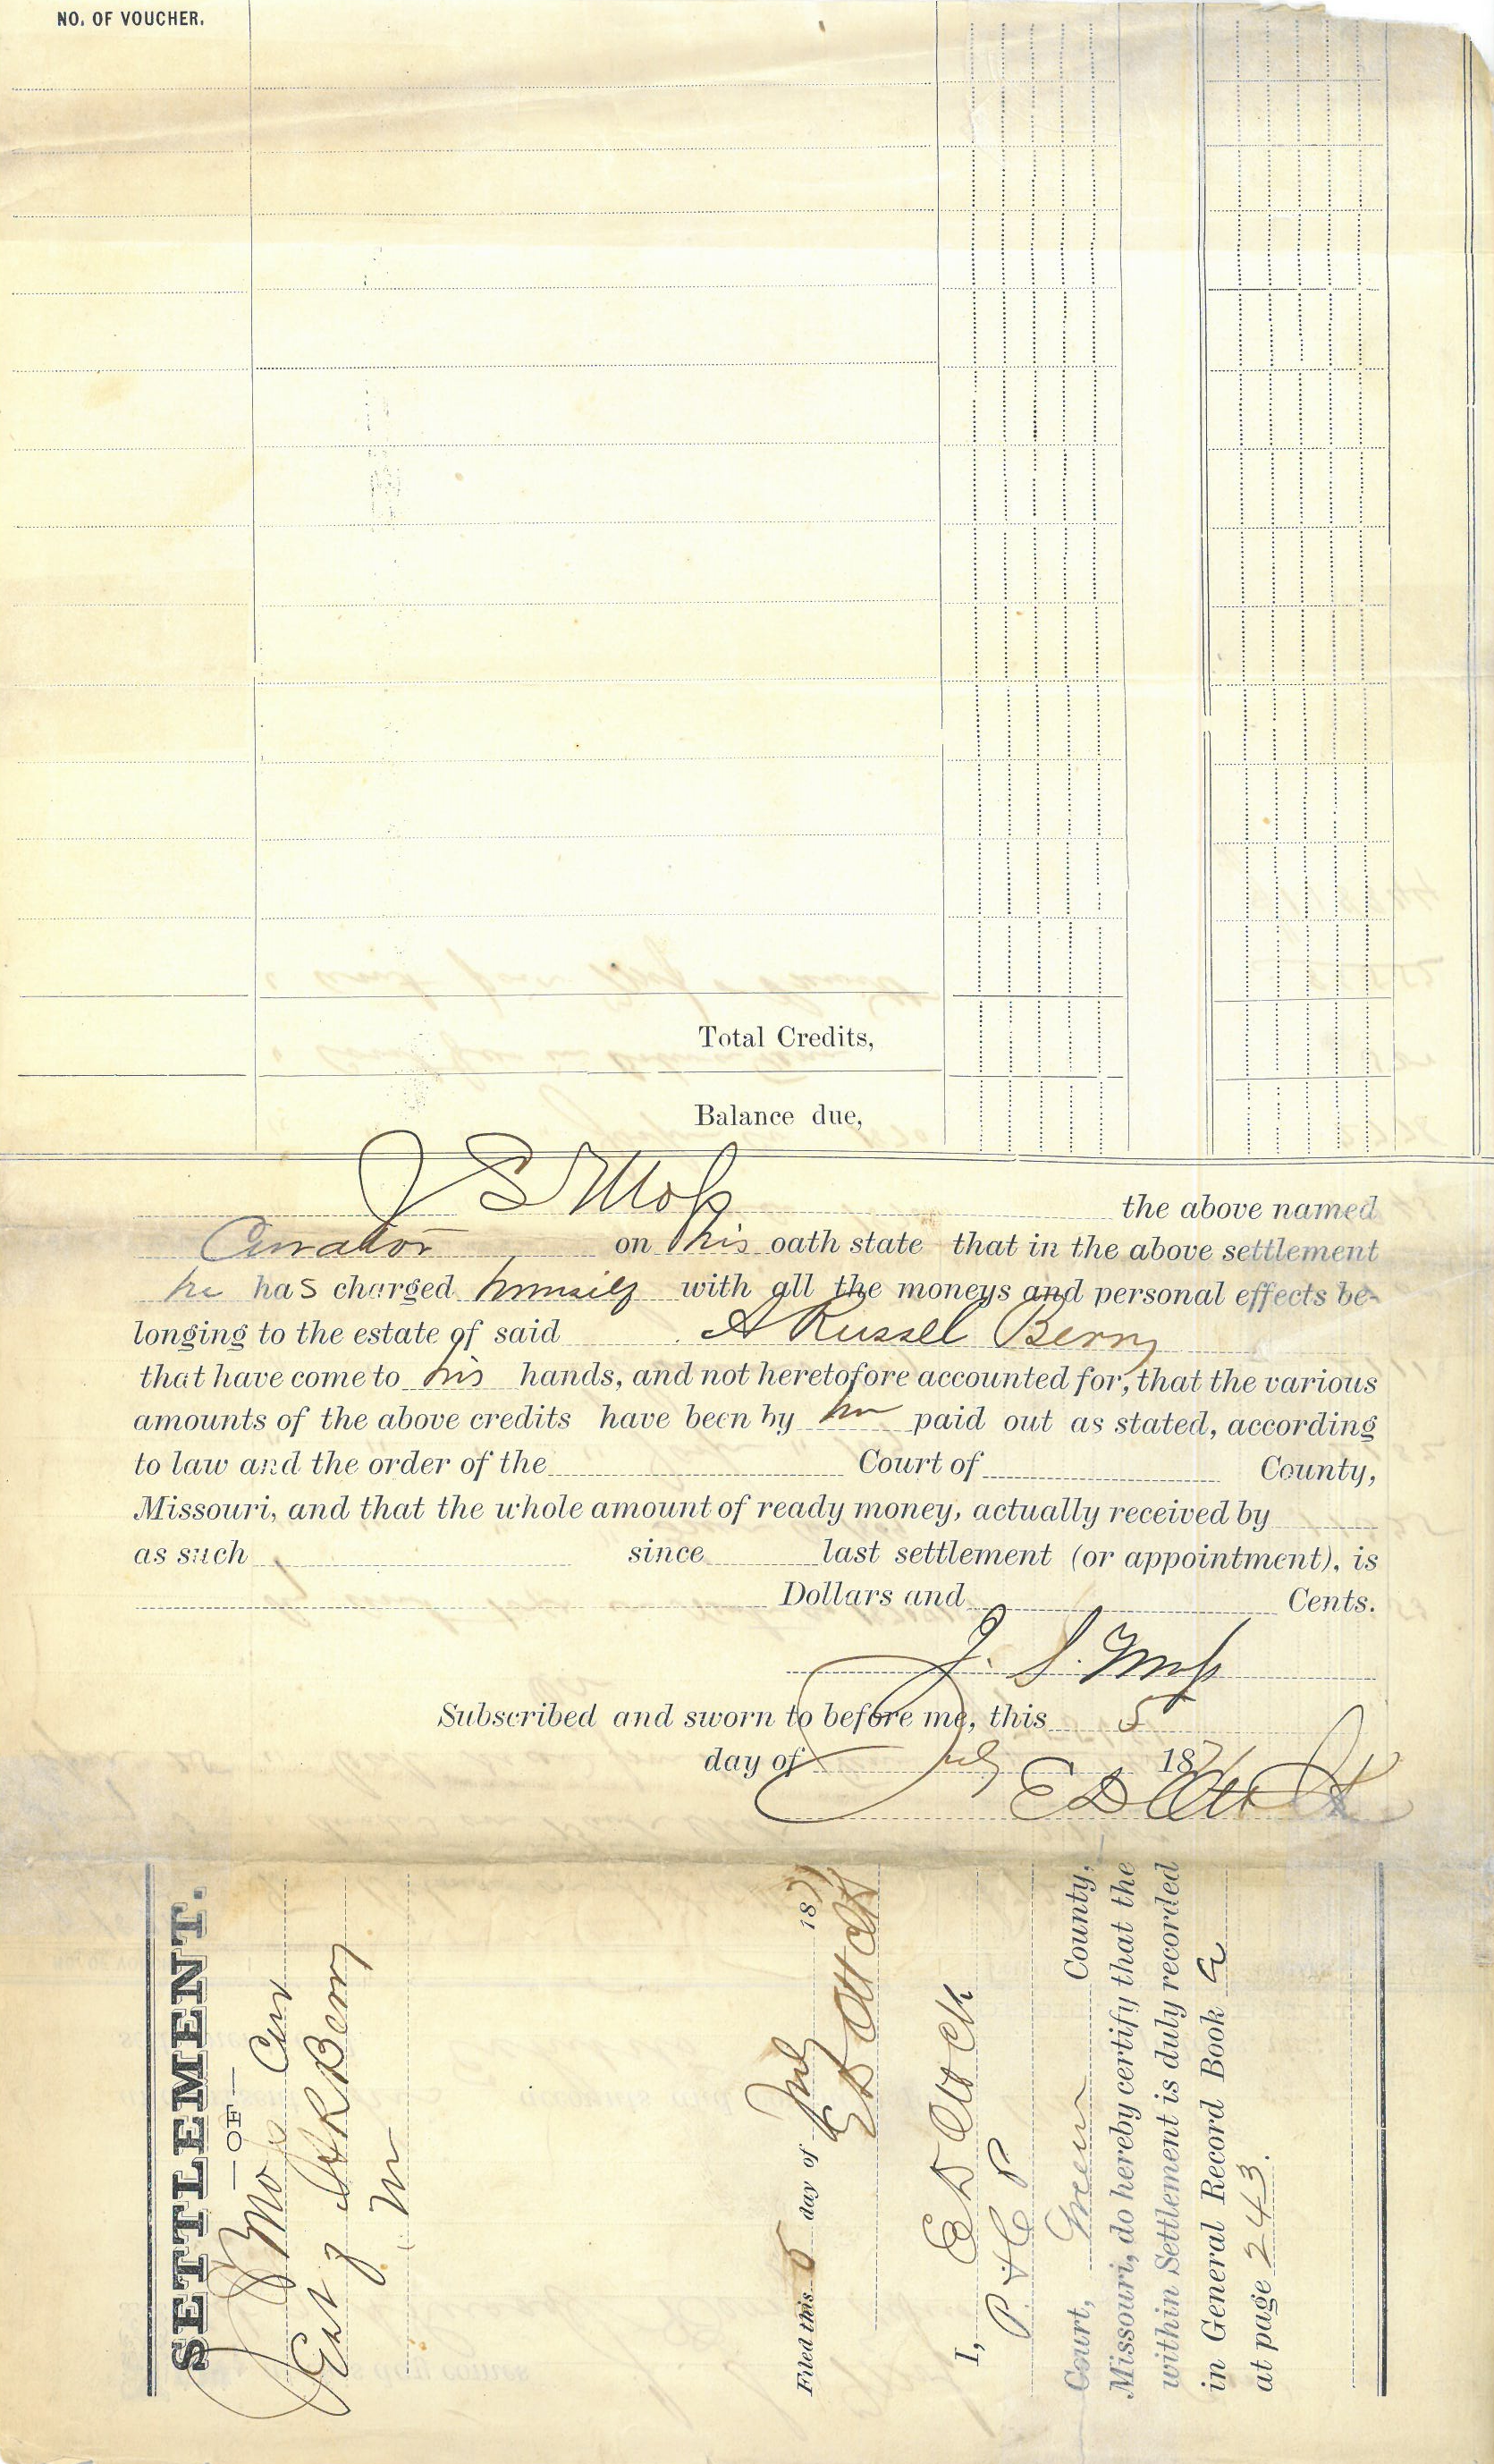 NO. OF VOUCHER.
Total Credits,
Balance due,
J S Moss the above named
Curator on his oath state that in the above settlement
he has charged himself with all the moneys and personal effects be-
longing to the estate of said A Russel Berry
that have come to his hands, and not heretofore accounted for, that the various
amounts of the above credits have been by him paid out as stated, according
to law and the order of the Court of County,
Missouri, and that the whole amount of ready money, actually received by
as such since last settlement (or appointment), is
Dollars and Cents.
J. S. Moss
Subscribed and sworn to before me, this 5
day of July 187
E D Ott
SETTLEMENT.
—OF—
J S Moss Cur
Est of A R Berry
Filed this 5 day of July 187
E D Ott Clk
I, E D Ott Clk
P & C P
Court, Green County,
Missouri, do hereby certify that the
within Settlement is duly recorded
in General Record Book
at page 243.